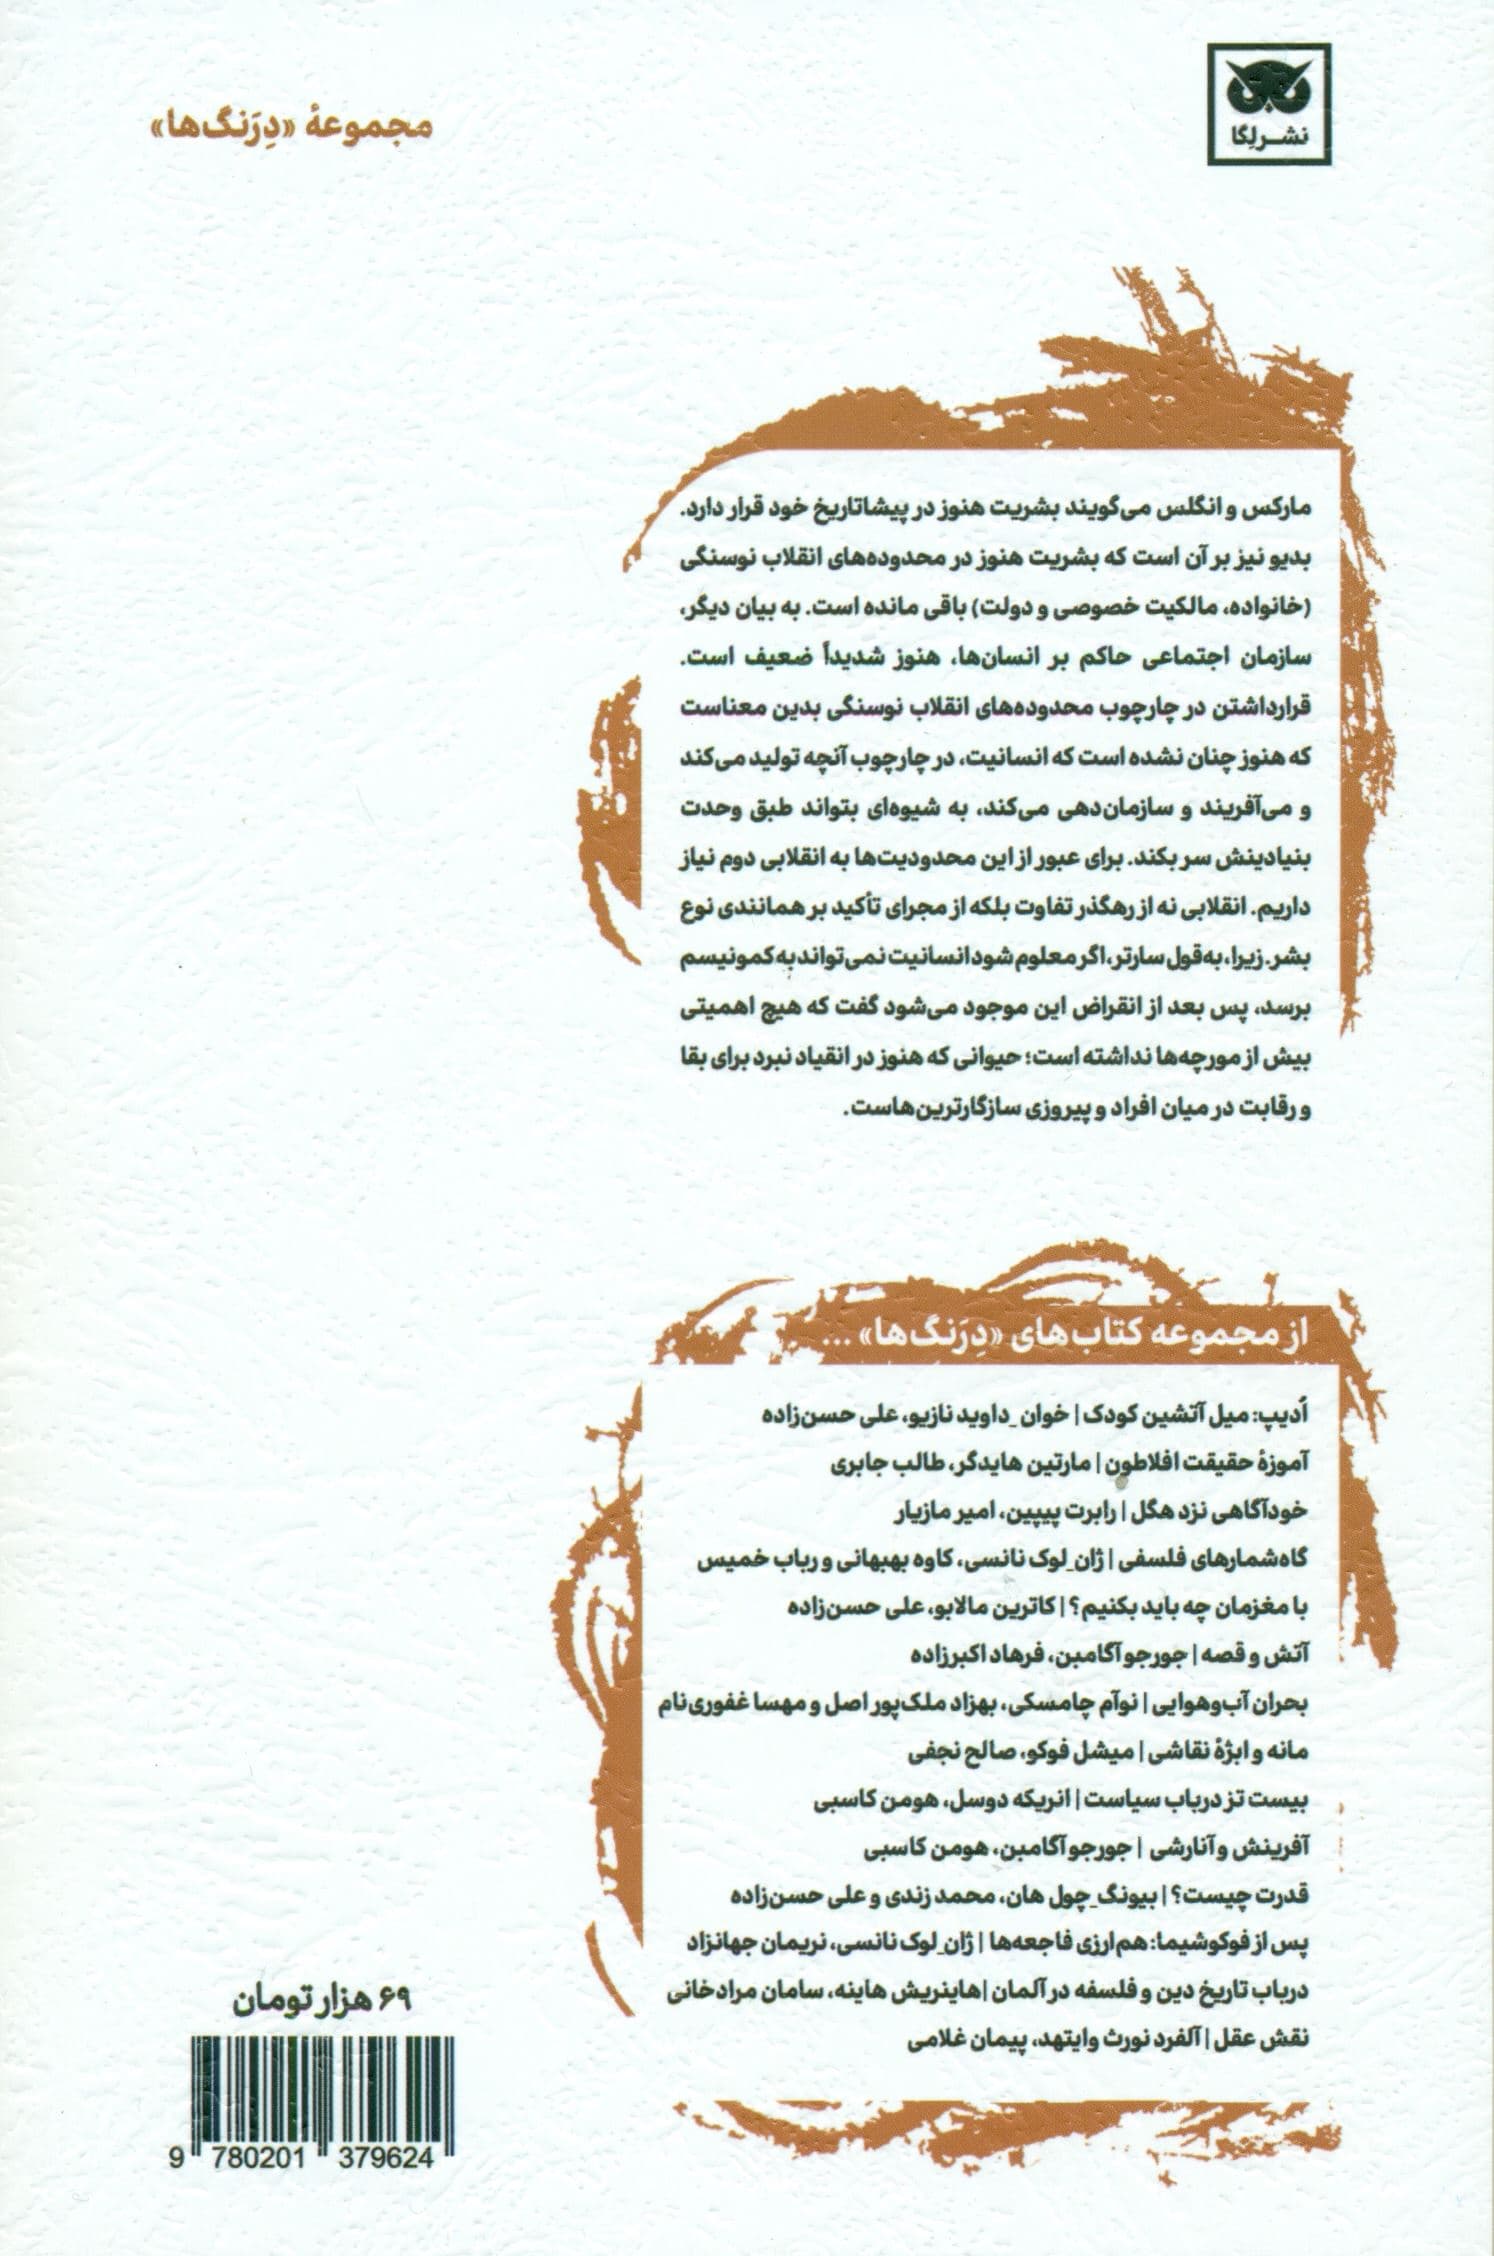 نشر لِگا
مجموعهٔ «دِرَنگ‌ها»
مارکس و انگلس می‌گویند بشریت هنوز در پیشاتاریخ خود قرار دارد.
بدیو نیز بر آن است که بشریت هنوز در محدوده‌های انقلاب نوسنگی
(خانواده، مالکیت خصوصی و دولت) باقی مانده است. به بیان دیگر،
سازمان اجتماعی حاکم بر انسان‌ها، هنوز شدیداً ضعیف است.
قرارداشتن در چارچوب محدوده‌های انقلاب نوسنگی بدین معناست
که هنوز چنان نشده است که انسانیت، در چارچوب آنچه تولید می‌کند
و می‌آفریند و سازمان‌دهی می‌کند، به شیوه‌ای بتواند طبق وحدت
بنیادینش سر بکند. برای عبور از این محدودیت‌ها به انقلابی دوم نیاز
داریم. انقلابی نه از رهگذر تفاوت بلکه از مجرای تأکید بر همانندی نوع
بشر. زیرا، به‌قول سارتر، اگر معلوم شود انسانیت نمی‌تواند به کمونیسم
برسد، پس بعد از انقراض این موجود می‌شود گفت که هیچ اهمیتی
بیش از مورچه‌ها نداشته است؛ حیوانی که هنوز در انقیاد نبرد برای بقا
و رقابت در میان افراد و پیروزی سازگارترین‌هاست.
از مجموعه کتاب‌های «دِرَنگ‌ها» ...
اُدیپ: میل آتشین کودک | خوان_داوید نازیو، علی حسن‌زاده
آموزهٔ حقیقت افلاطون | مارتین هایدگر، طالب جابری
خودآگاهی نزد هگل | رابرت پیپین، امیر مازیار
گاه‌شمارهای فلسفی | ژان_لوک نانسی، کاوه بهبهانی و رباب خمیس
با مغزمان چه باید بکنیم؟ | کاترین مالابو، علی حسن‌زاده
آتش و قصه | جورجو آگامبن، فرهاد اکبرزاده
بحران آب‌وهوایی | نوآم چامسکی، بهزاد ملک‌پور اصل و مهسا غفوری‌نام
مانه و ابژهٔ نقاشی | میشل فوکو، صالح نجفی
بیست تز درباب سیاست | انریکه دوسل، هومن کاسبی
آفرینش و آنارشی | جورجو آگامبن، هومن کاسبی
قدرت چیست؟ | بیونگ_چول هان، محمد زندی و علی حسن‌زاده
پس از فوکوشیما: هم‌ارزی فاجعه‌ها | ژان_لوک نانسی، نریمان جهانزاد
درباب تاریخ دین و فلسفه در آلمان | هاینریش هاینه، سامان مرادخانی
نقش عقل | آلفرد نورث وایتهد، پیمان غلامی
۶۹ هزار تومان
9 780201 379624